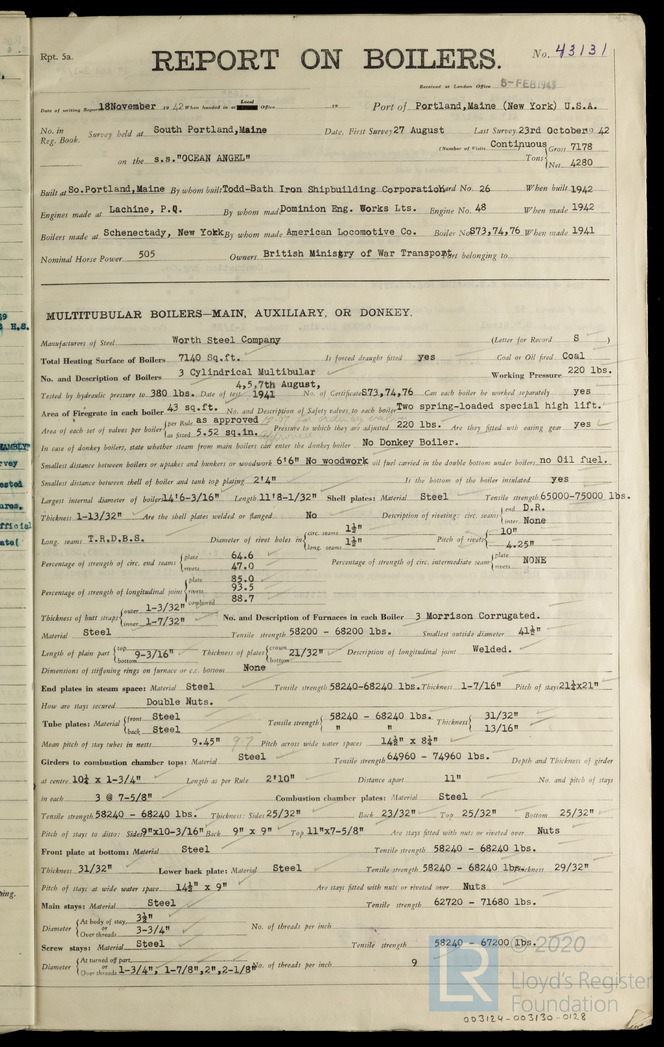 Rpt. 5a.
REPORT ON BOILERS.
No. 43131
Received at London Office 5-FEB 1943
Date of writing Report 18November 1942 When handed in at Local Office 19 Port of Portland,Maine (New York) U.S.A.
No. in Reg. Book. Survey held at South Portland,Maine Date, First Survey 27 August Last Survey 23rd October 19 42
(Number of Visits Continuous
on the s.s."OCEAN ANGEL" Tons { Gross 7178 Net 4280
Built at So.Portland,Maine By whom built Todd-Bath Iron Shipbuilding Corporation Yard No. 26 When built 1942
Engines made at Lachine, P.Q. By whom made Dominion Eng. Works Lts. Engine No. 48 When made 1942
Boilers made at Schenectady, New York By whom made American Locomotive Co. Boiler No. S73,74,76 When made 1941
Nominal Horse Power 505 Owners British Ministry of War Transport Port belonging to
MULTITUBULAR BOILERS—MAIN, AUXILIARY, OR DONKEY.
Manufacturers of Steel Worth Steel Company (Letter for Record S )
Total Heating Surface of Boilers 7140 Sq.ft. Is forced draught fitted yes Coal or Oil fired Coal
No. and Description of Boilers 3 Cylindrical Multibular Working Pressure 220 lbs.
Tested by hydraulic pressure to 380 lbs. Date of test 4,5,7th August, 1941 No. of Certificate S73,74,76 Can each boiler be worked separately yes
Area of Firegrate in each boiler 43 sq.ft. No. and Description of Safety valves to each boiler Two spring-loaded special high lift.
Area of each set of valves per boiler { per Rule as approved as fitted 5.52 sq.in. Pressure to which they are adjusted 220 lbs. Are they fitted with easing gear yes
In case of donkey boilers, state whether steam from main boilers can enter the donkey boiler No Donkey Boiler.
Smallest distance between boilers or uptakes and bunkers or woodwork 6'6" No woodwork Is oil fuel carried in the double bottom under boilers no Oil fuel.
Smallest distance between shell of boiler and tank top plating 2'4" Is the bottom of the boiler insulated yes
Largest internal diameter of boiler 14'6-3/16" Length 11'8-1/32" Shell plates: Material Steel Tensile strength 65000-75000 lbs.
Thickness 1-13/32" Are the shell plates welded or flanged No Description of riveting: circ. seams { end D.R. inter. None
Long. seams T.R.D.B.S. Diameter of rivet holes in { circ. seams 1½" long. seams 1½" Pitch of rivets { 10" 4.25"
Percentage of strength of circ. end seams { plate 64.6 rivets 47.0 Percentage of strength of circ. intermediate seam { plate rivets NONE
Percentage of strength of longitudinal joint { plate 85.0 rivets 93.5 combined 88.7
Thickness of butt straps { outer 1-3/32" inner 1-7/32" No. and Description of Furnaces in each Boiler 3 Morrison Corrugated.
Material Steel Tensile strength 58200 - 68200 lbs. Smallest outside diameter 41½"
Length of plain part { top bottom 9-3/16" Thickness of plates { crown bottom 21/32" Description of longitudinal joint Welded.
Dimensions of stiffening rings on furnace or c.c. bottom None
End plates in steam space: Material Steel Tensile strength 58240-68240 lbs. Thickness 1-7/16" Pitch of stays 21¼x21"
How are stays secured Double Nuts.
Tube plates: Material { front Steel back Steel Tensile strength { 58240 - 68240 lbs. " " Thickness { 31/32" 13/16"
Mean pitch of stay tubes in nests 9.45" 9.7 Pitch across wide water spaces 14½" x 8¼"
Girders to combustion chamber tops: Material Steel Tensile strength 64960 - 74960 lbs. Depth and Thickness of girder
at centre 10¼ x 1-3/4" Length as per Rule 2'10" Distance apart 11" No. and pitch of stays
in each 3 @ 7-5/8" Combustion chamber plates: Material Steel
Tensile strength 58240 - 68240 lbs. Thickness: Sides 25/32" Back 23/32" Top 25/32" Bottom 25/32"
Pitch of stays to ditto: Sides 9"x10-3/16" Back 9" x 9" Top 11"x7-5/8" Are stays fitted with nuts or riveted over Nuts
Front plate at bottom: Material Steel Tensile strength 58240 - 68240 lbs.
Thickness 31/32" Lower back plate: Material Steel Tensile strength 58240 - 68240 lbs. Thickness 29/32"
Pitch of stays at wide water space 14½" x 9" Are stays fitted with nuts or riveted over Nuts
Main stays: Material Steel Tensile strength 62720 - 71680 lbs.
Diameter { At body of stay 3½" or Over threads 3-3/4" No. of threads per inch
Screw stays: Material Steel Tensile strength 58240 - 67200 lbs.
Diameter { At turned off part or Over threads 1-3/4", 1-7/8",2",2-1/8" No. of threads per inch 9
LR © 2020
Lloyd's Register
Foundation
003124-003130-0128